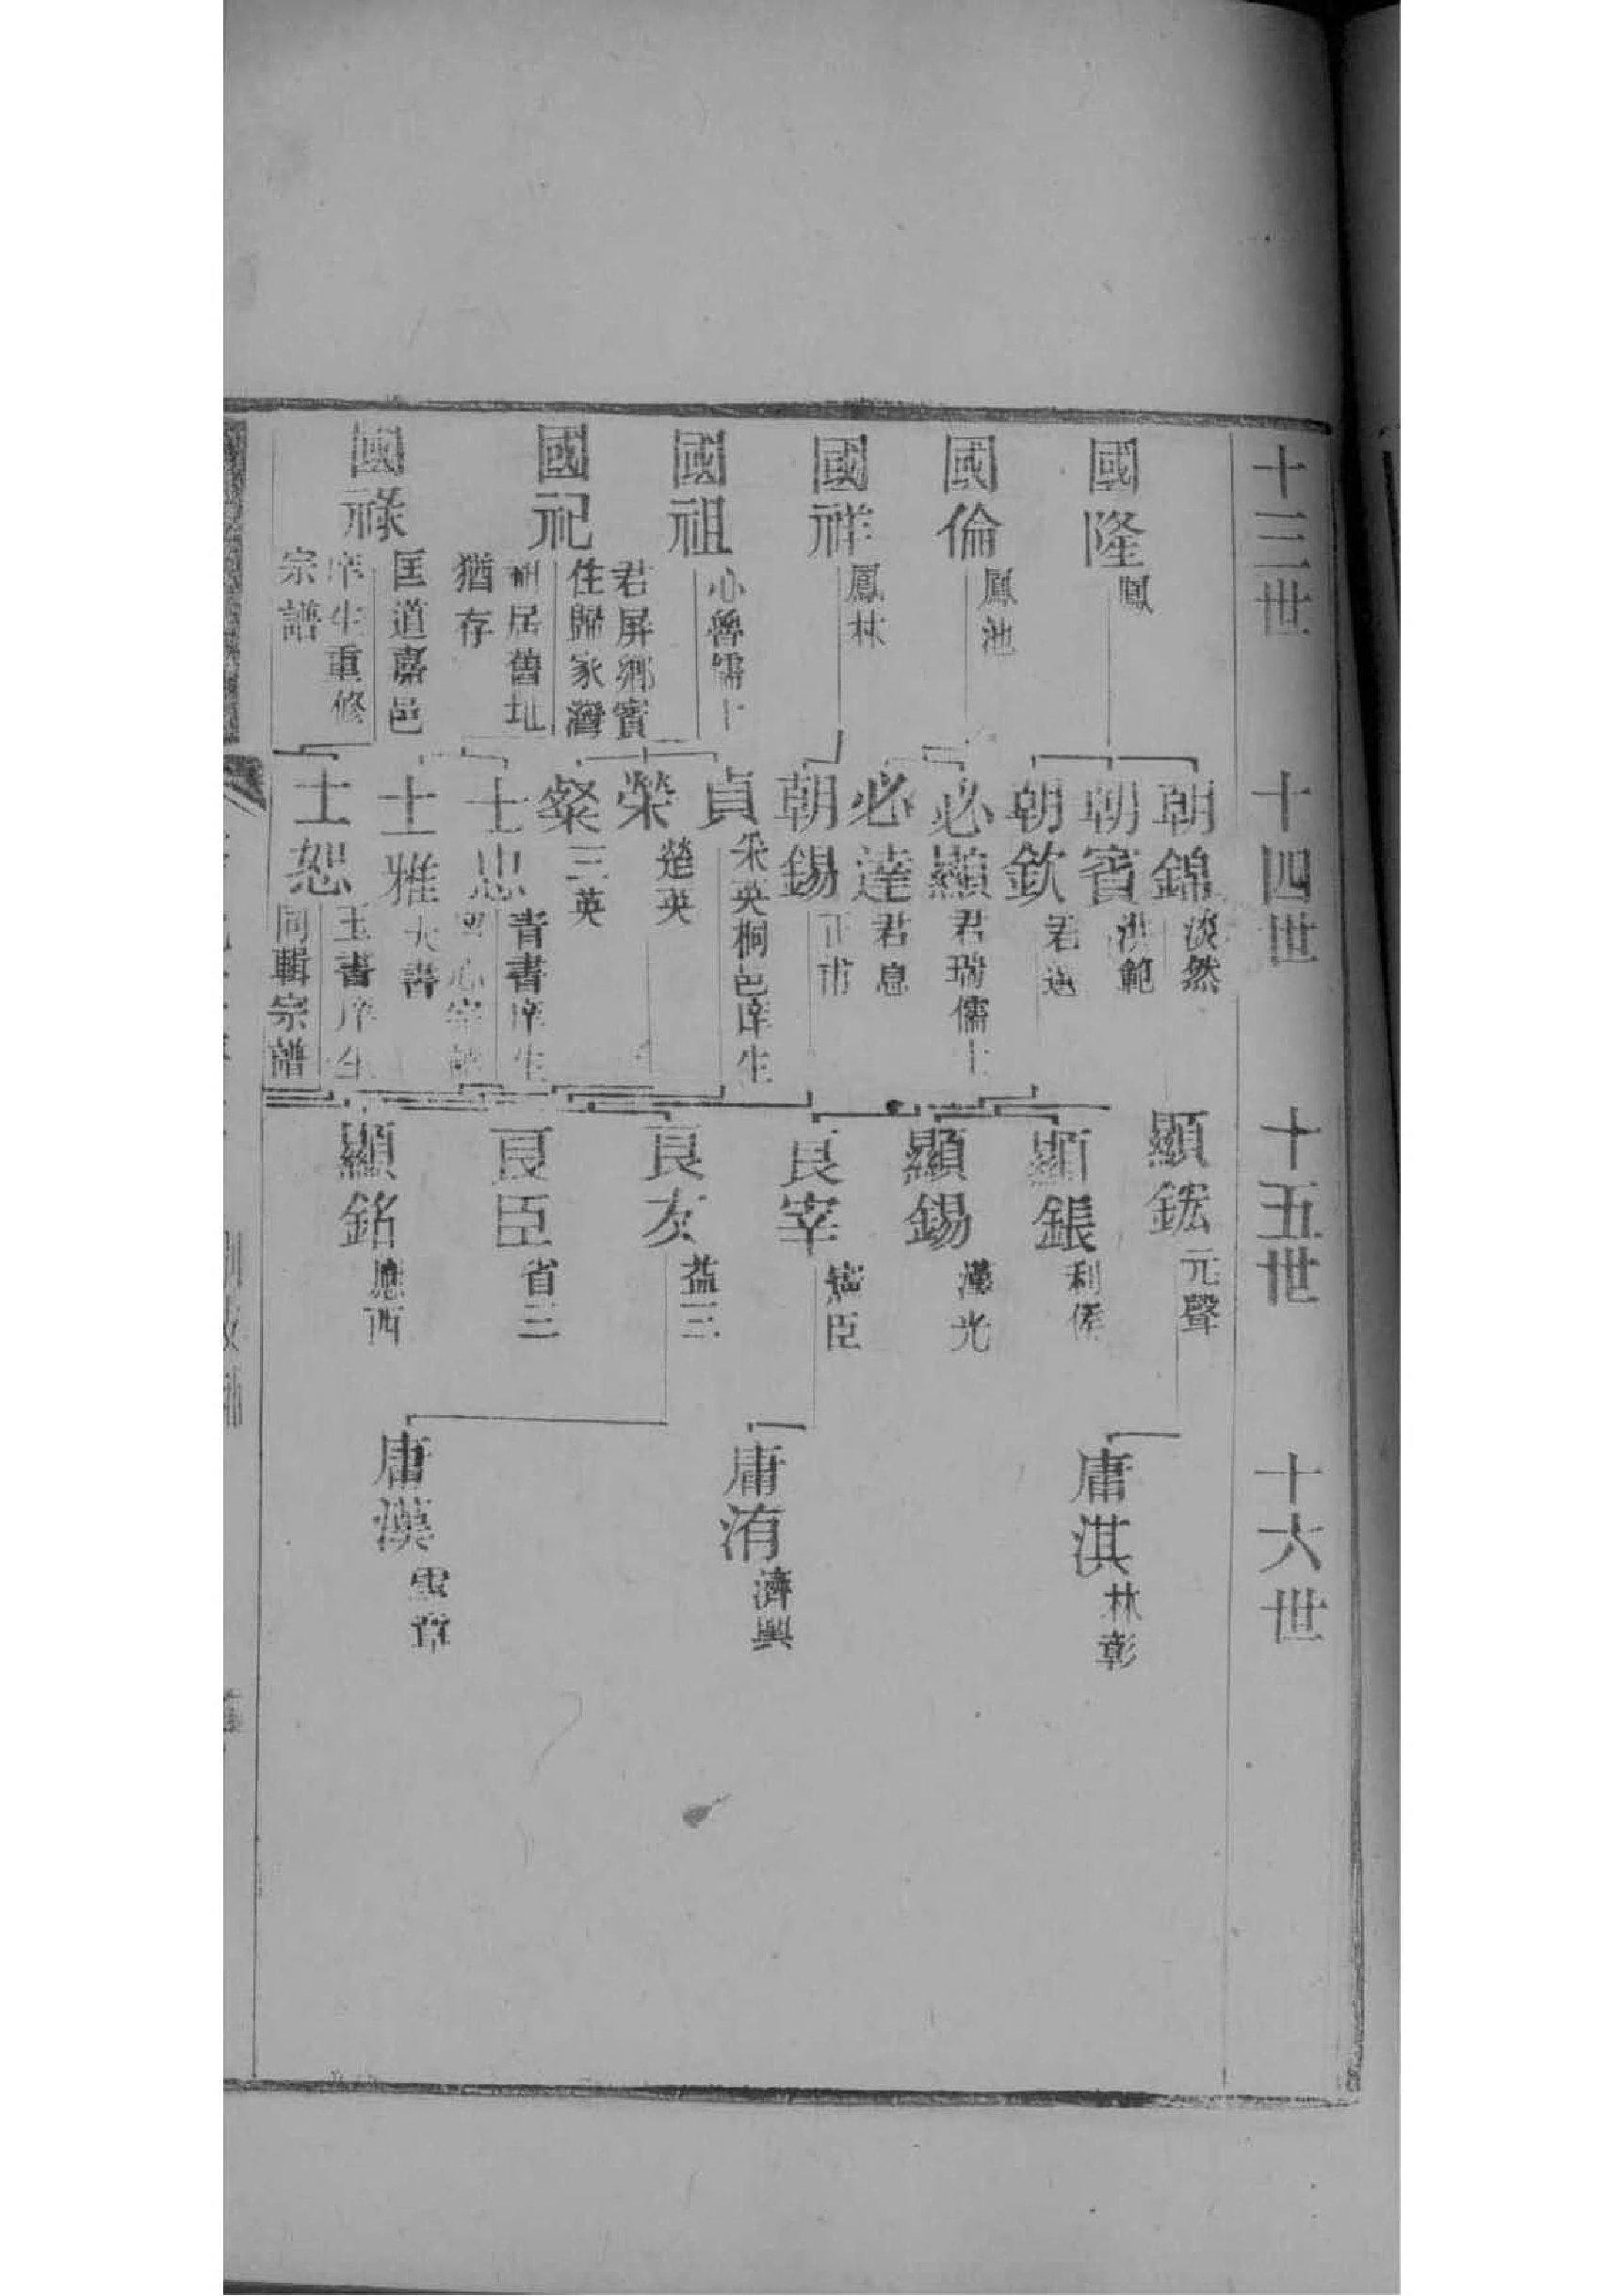 十三世
國隆
鳳
國倫
鳳池
國祥
鳳林
國祖
心魯儒士
國祀
君屏鄉賓
住歸家灣
居舊址
猶存
國祿
匡道嘉邑
庠生重修
宗譜
十四世
朝錦
淡然
朝賓
洪範
朝欽
君
必顯
君瑞儒士
必達
君息
朝錫
正甫
貞
采英桐邑庠生
榮
楚英
粲
三英
士忠
青書庠生
士雅
大書
士恕
玉書庠生
同輯宗譜
十五世
顯鋐
元聲
顯鋹
利
顯錫
漢光
良宰
臣
良友
益三
良臣
省三
顯銘
西
十六世
庸淇
林彰
庸洧
濟興
庸漢
雲章